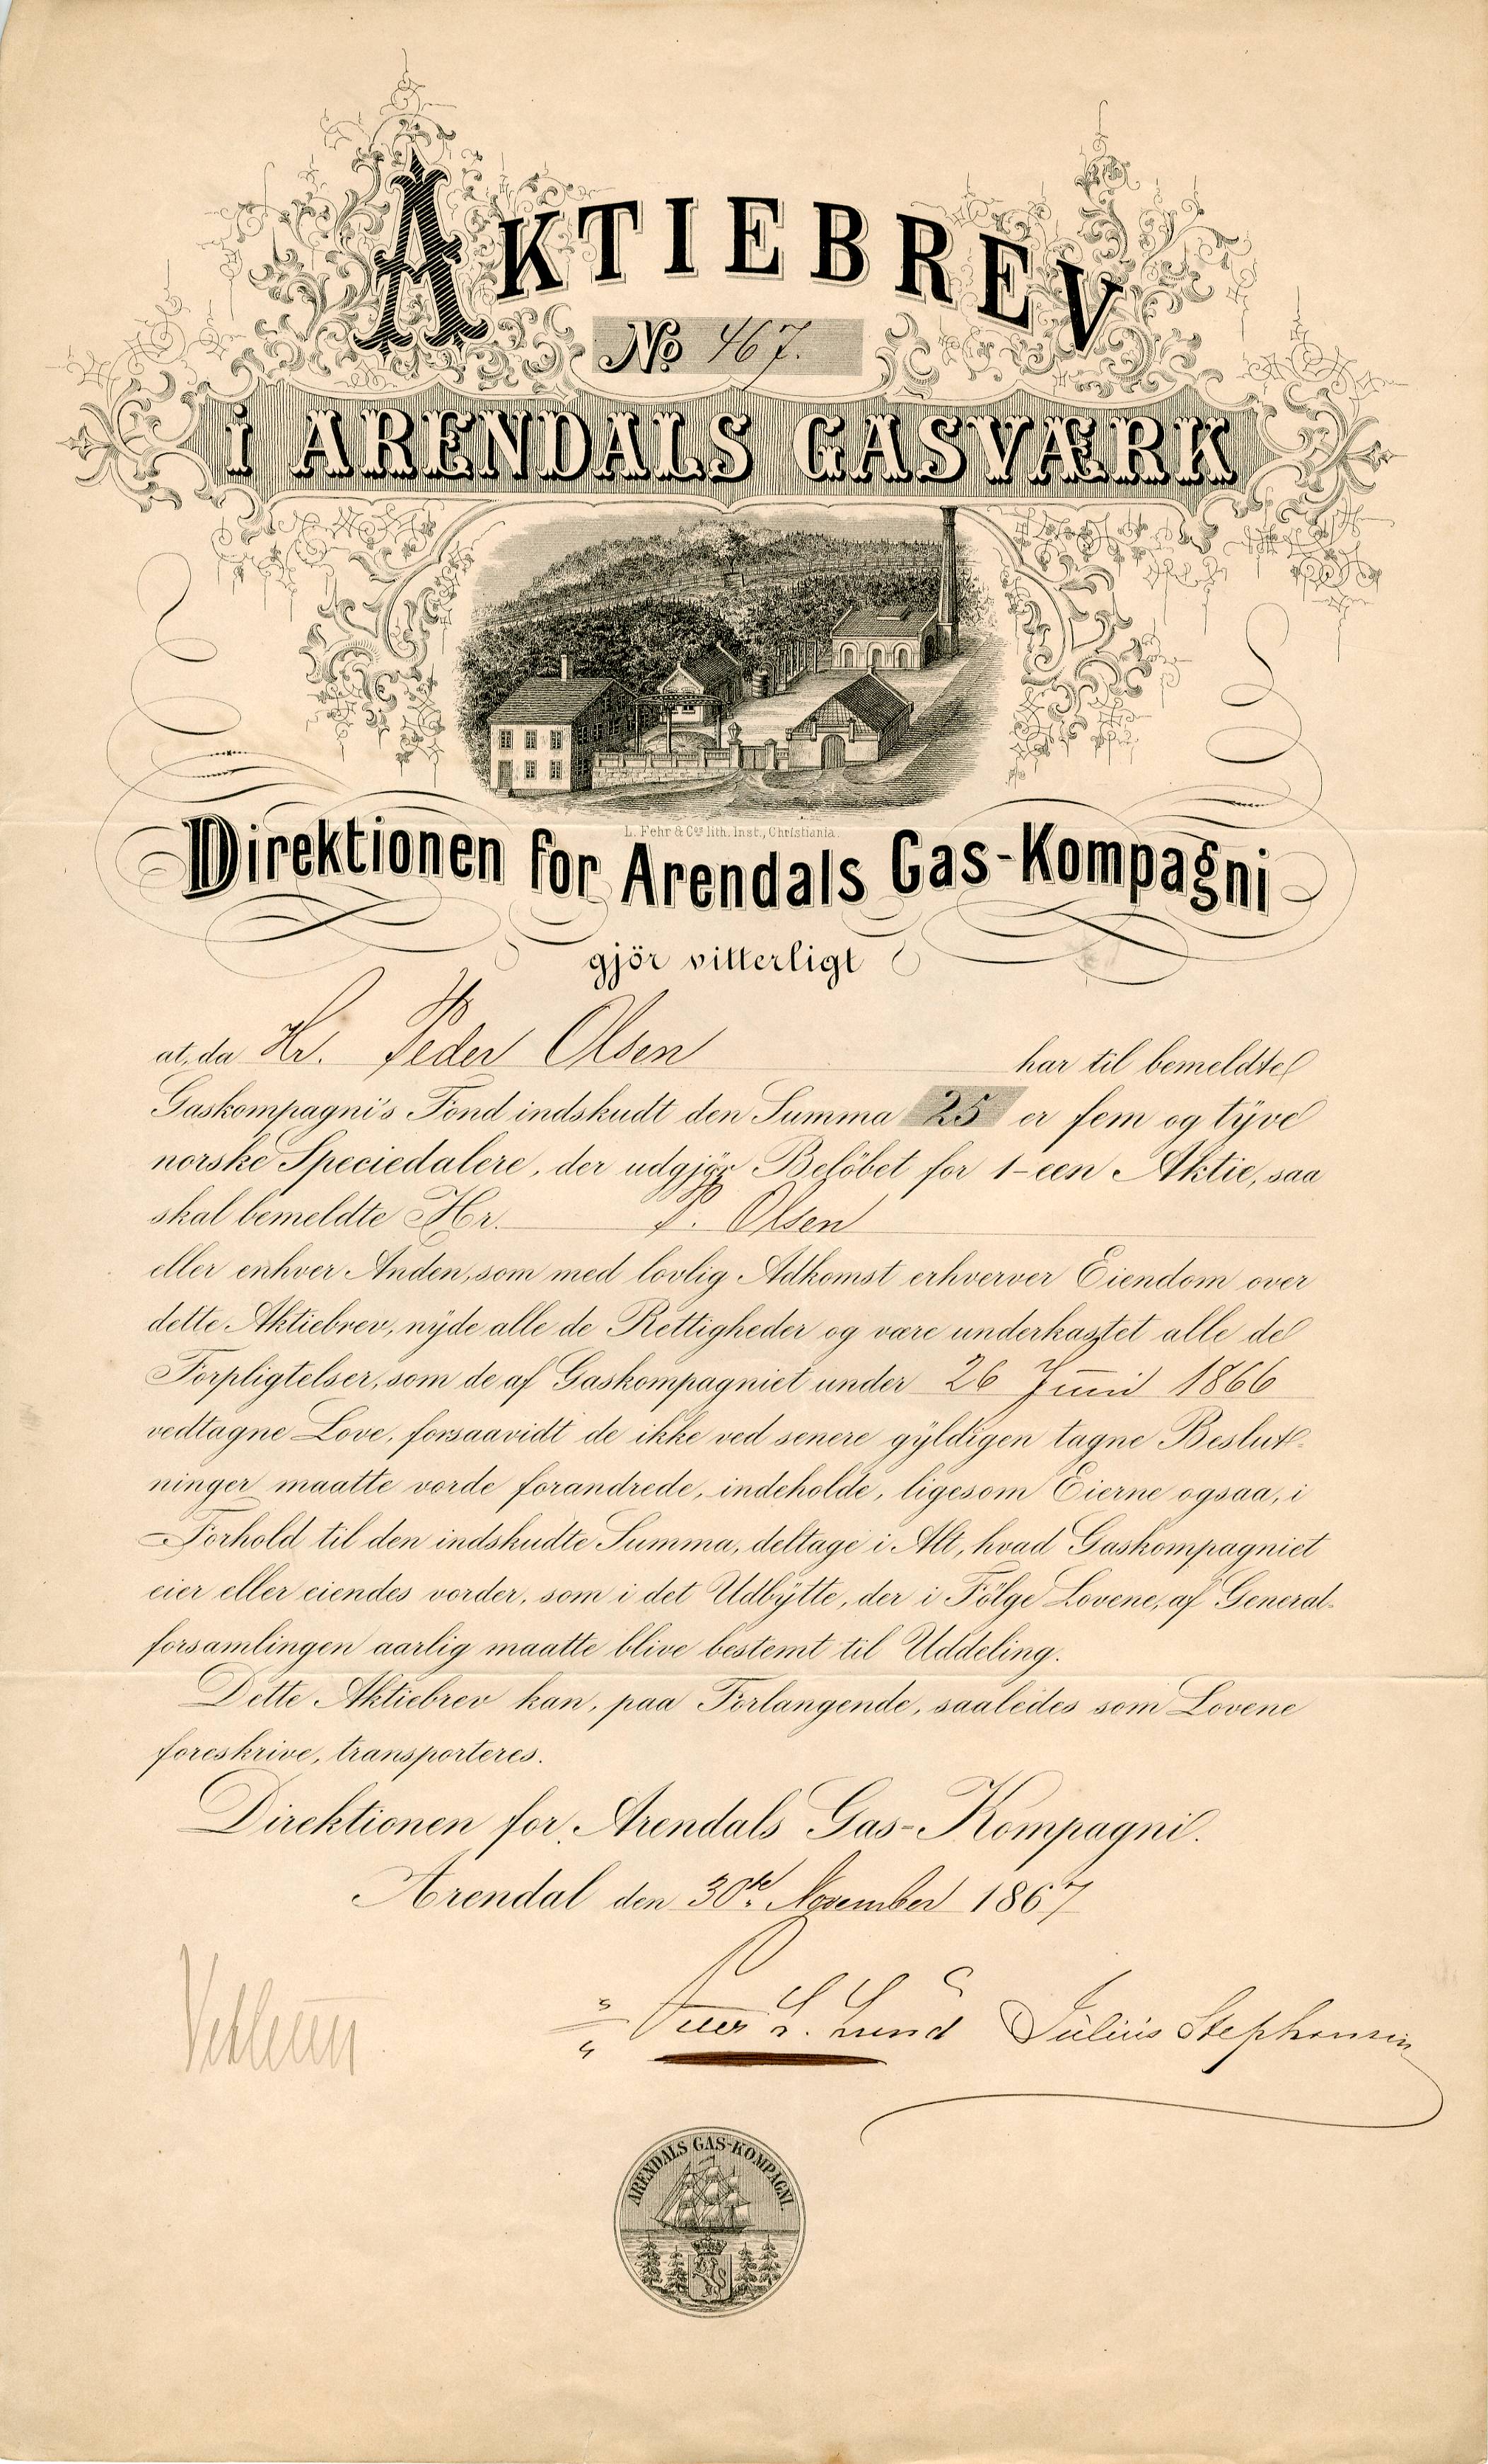 AKTIEBREV
No 467.
i ARENDALS GASVÆRK
L. Fehr & Co lith. Inst., Christiania.
Direktionen for Arendals Gas-Kompagni
gjör vitterligt
at, da Hr. Peder Olsen har til bemeldte
Gaskompagni's Fond indskudt den Summa 25 er fem og tÿve
norske Speciedalere, der udgjör Belöbet for 1-een Aktie, saa
skal bemeldte Hr. P. Olsen
eller enhver Anden, som med lovlig Adkomst erhverver Eiendom over
dette Aktiebrev, nÿde alle de Rettigheder og være underkastet alle de
Forpligtelser, som de af Gaskompagniet under 26 Juni 1866
vedtagne Love, forsaavidt de ikke ved senere gÿldigen tagne Beslut-
ninger maatte vorde forandrede, indeholde, ligesom Eierne ogsaa, i
Forhold til den indskudte Summa, deltage i Alt, hvad Gaskompagniet
eier eller eiendes vorder, som i det Udbÿtte, der i Fölge Lovene, af General-
forsamlingen aarlig maatte blive bestemt til Uddeling.
Dette Aktiebrev kan, paa Forlangende, saaledes som Lovene
foreskrive, transporteres.
Direktionen for Arendals Gas-Kompagni.
Arendal den 30te November 1867
Julius Stephansen
ARENDALS GAS-KOMPAGNI.